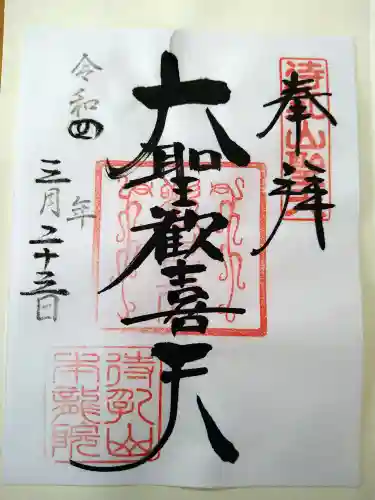 奉拝
待乳山聖天
大聖歓喜天
令和四年
三月二十三日
待乳山
本龍院